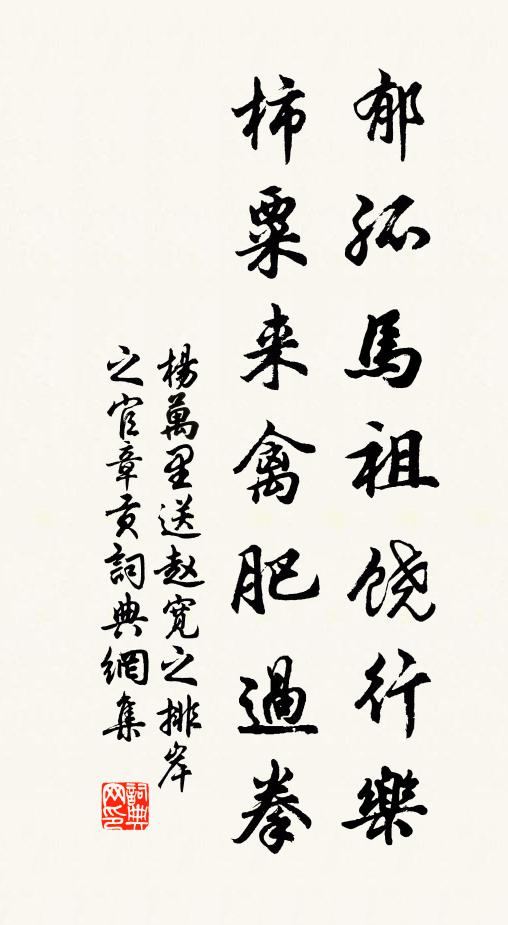 郁孤馬祖饶行樂
柿粟来禽肥過拳
楊萬里送赵寛之排岸
之官章贡詞典網集
詞典网印